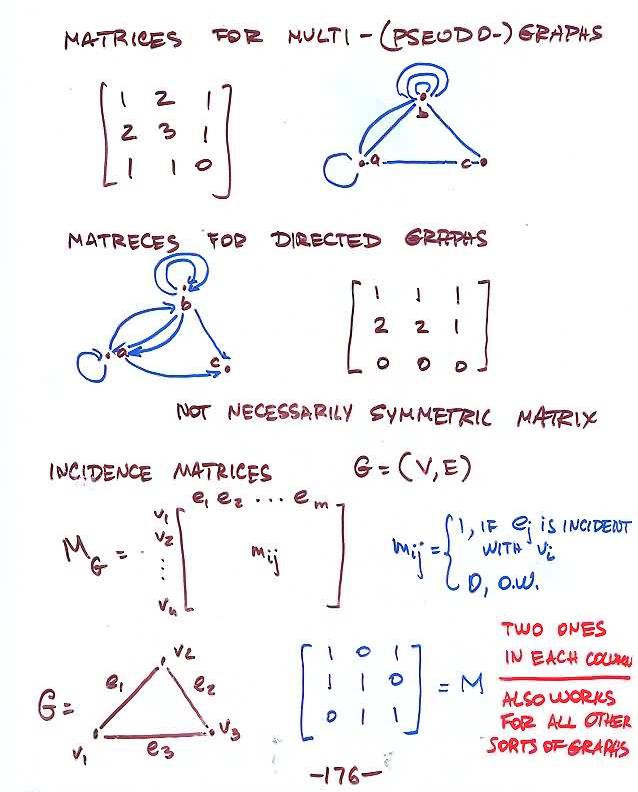 MATRICES FOR MULTI-(PSEUDO-)GRAPHS
1 2 1
2 3 1
1 1 0
b
a
c
MATRECES FOR DIRECTED GRAPHS
b
a
c
1 1 1
2 2 1
0 0 0
NOT NECESSARILY SYMMETRIC MATRIX
INCIDENCE MATRICES G = (V, E)
e1 e2 ... em
v1
v2
⋮
vn
MG =
mij
mij = { 1, IF ej IS INCIDENT
WITH vi
0, O.W.
G =
v2
e1
e2
v1
e3
v3
1 0 1
1 1 0
0 1 1
= M
TWO ONES
IN EACH COLUMN
ALSO WORKS
FOR ALL OTHER
SORTS OF GRAPHS
-176-